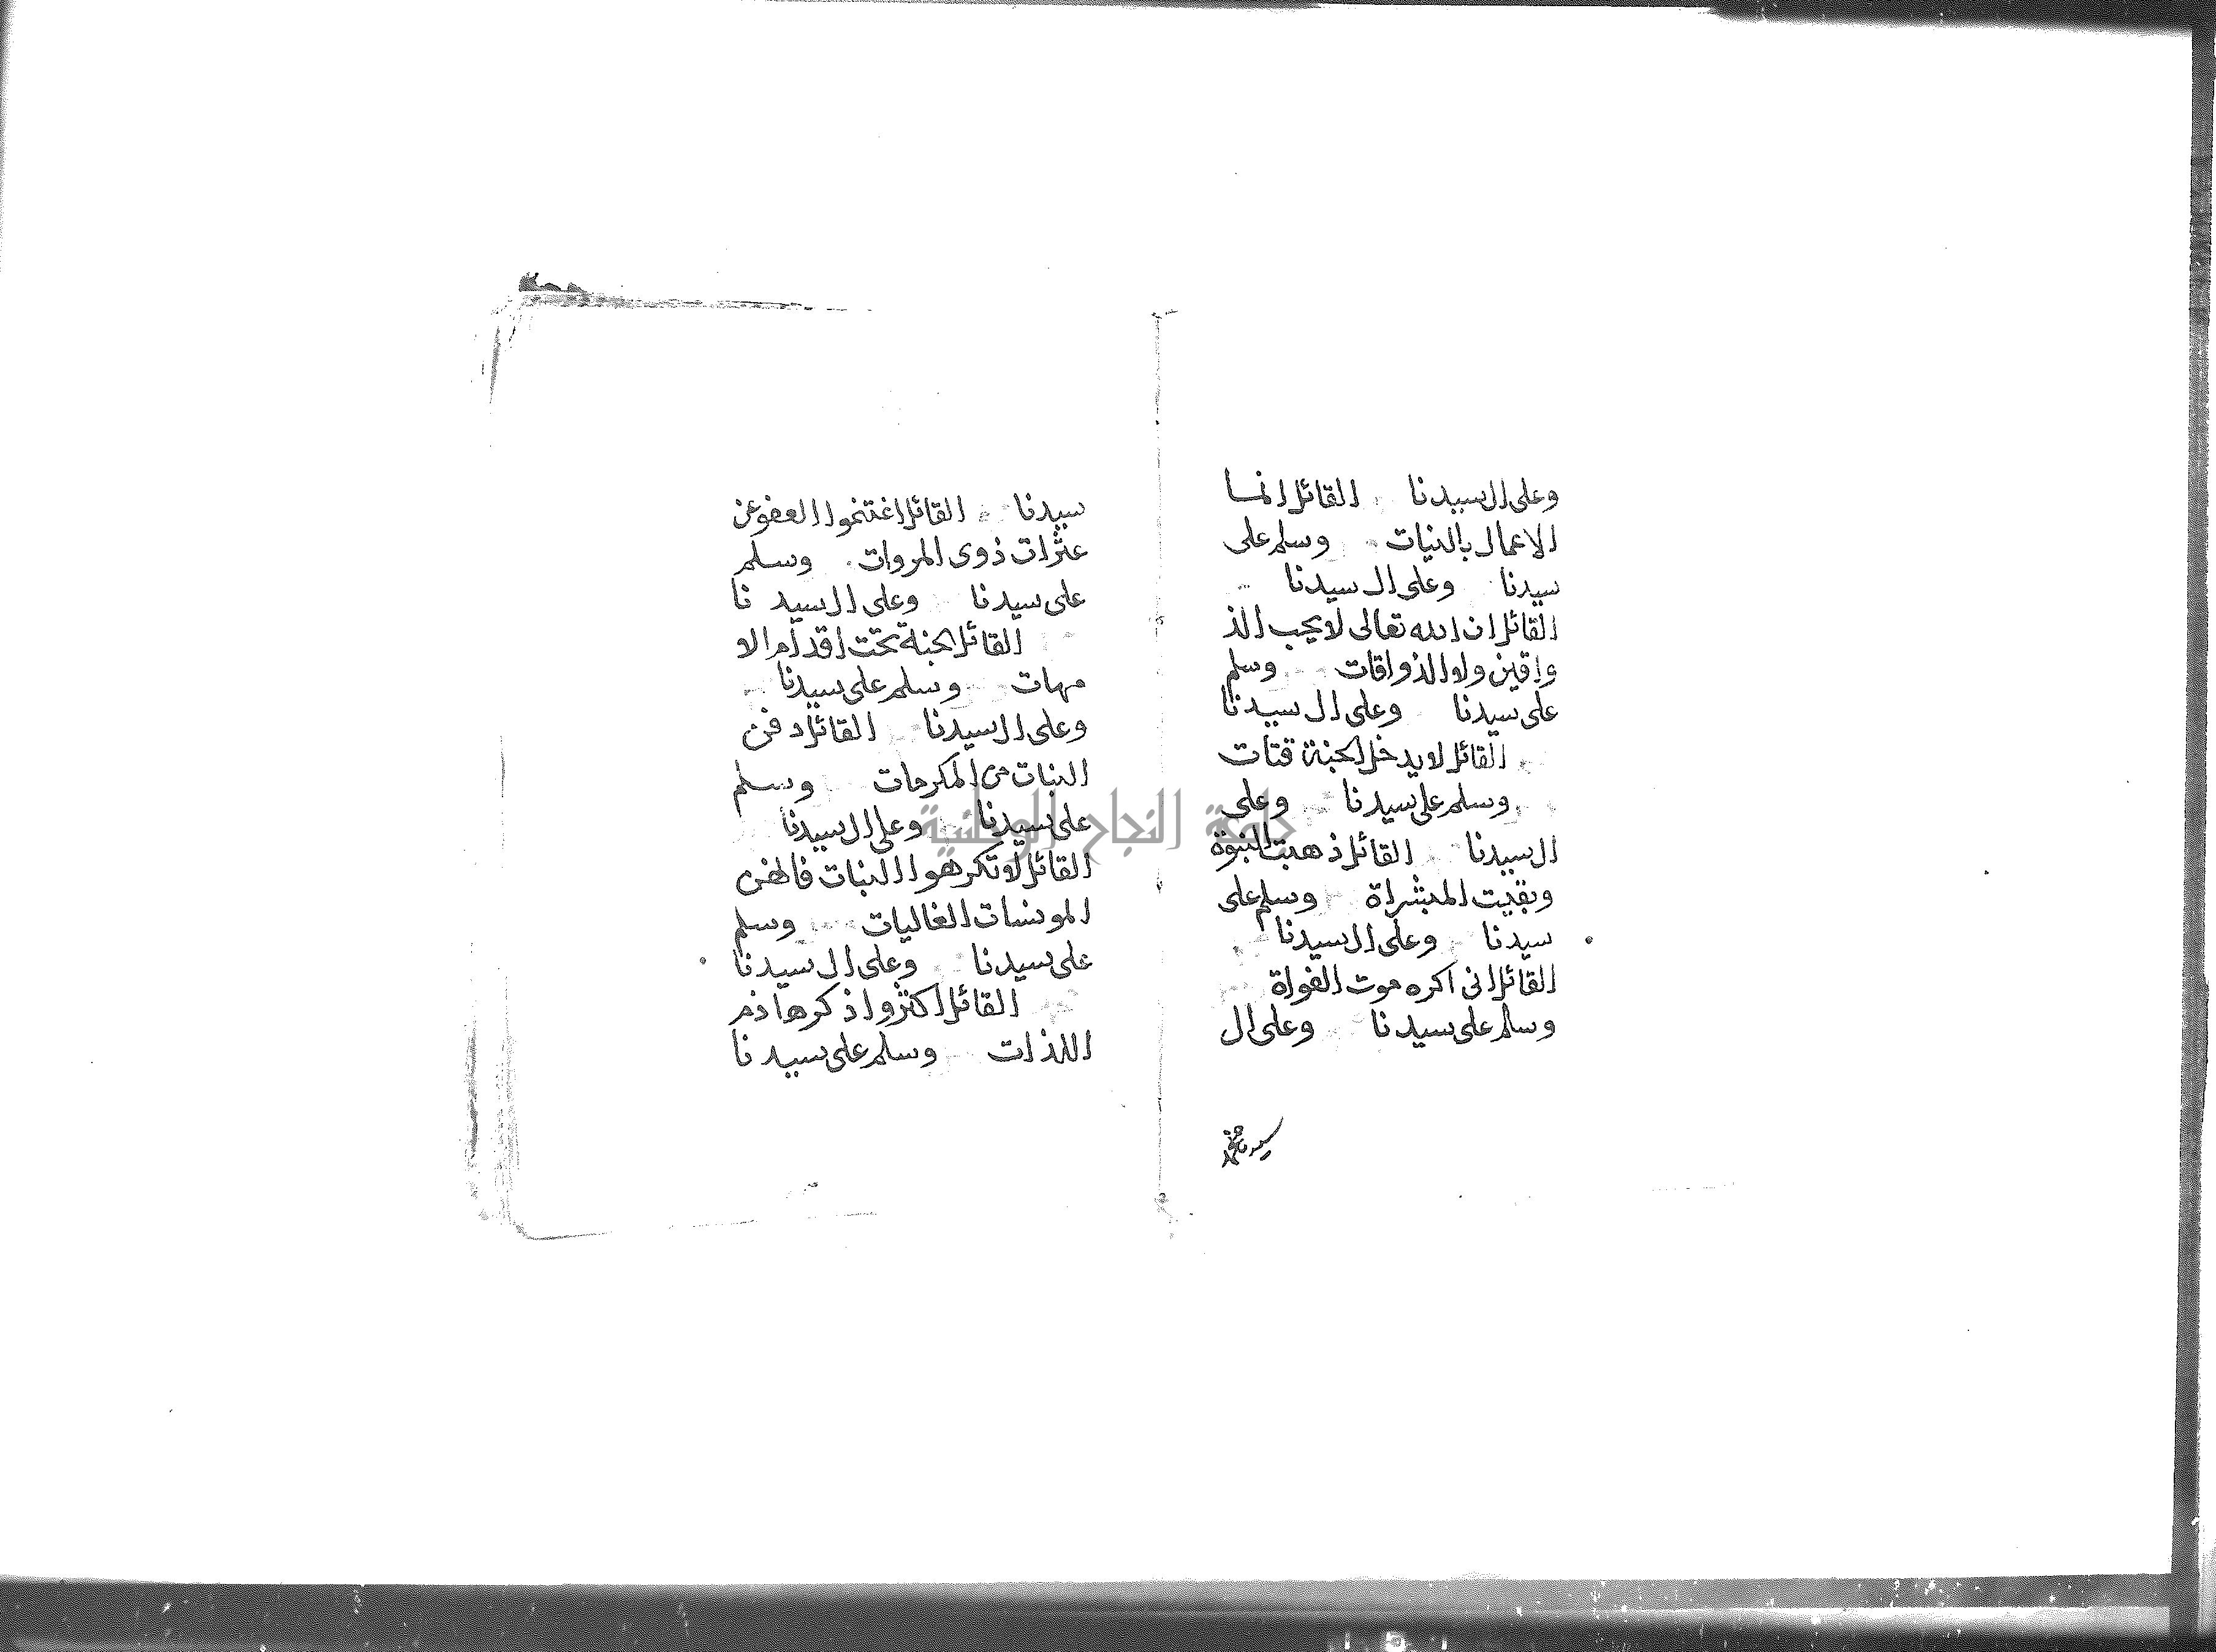 وعلى ال سيدنا القائل انما
الاعمال بالنيات وسلم على
سيدنا وعلى ال سيدنا
القائل ان الله تعالى لا يحب الذ
واقين ولا الذواقات وسلم
على سيدنا وعلى ال سيدنا
القائل لا يدخل الجنة قتات
وسلم على سيدنا وعلى
ال سيدنا القائل ذهبت النبوة
وبقيت المبشراة وسلم على
سيدنا وعلى ال سيدنا
القائل انى اكره موت الفواة
وسلم على سيدنا وعلى ال
سيدنا محمد
سيدنا القائل اغتنموا العفو عن
عثرات ذوى المروات وسلم
على سيدنا وعلى ال سيد نا
القائل الجنة تحت اقدام الا
مهات وسلم على سيدنا
وعلى ال سيدنا القائل دفن
البنات من المكرمات وسلم
على سيدنا وعلى ال سيدنا
القائل لا تكرهوا البنات فانهن
المونسات الغاليات وسلم
على سيدنا وعلى ال سيدنا
القائل اكثروا ذكر هاذم
اللذات وسلم على سيدنا
جامعة النجاح الوطنية